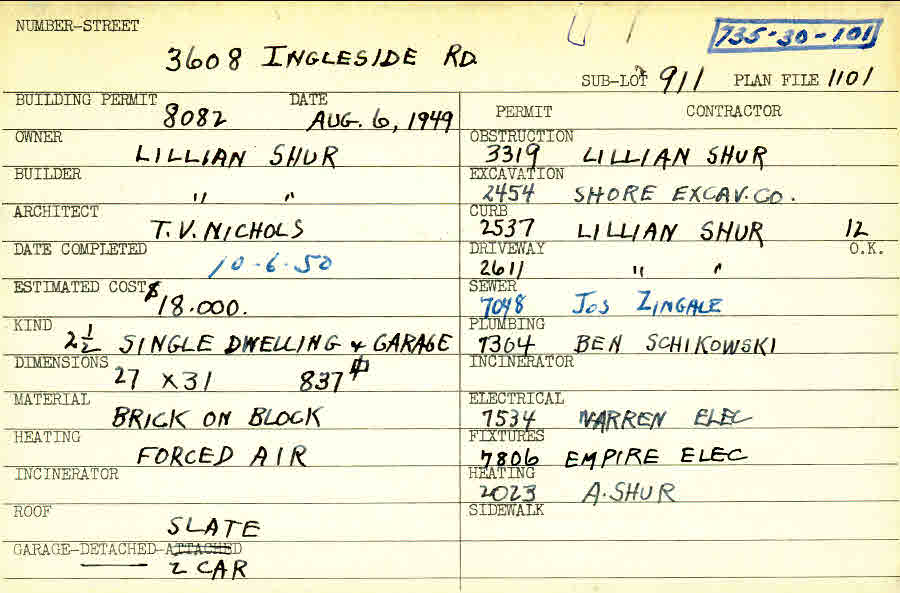 NUMBER-STREET
735-30-101
3608 INGLESIDE RD.
SUB-LOT 911 PLAN FILE 1101
BUILDING PERMIT 8082 DATE AUG. 6, 1949
OWNER LILLIAN SHUR
BUILDER " "
ARCHITECT T.V. NICHOLS
DATE COMPLETED 10-6-50
ESTIMATED COST $18.000.
KIND 2½ SINGLE DWELLING & GARAGE
DIMENSIONS 27 X 31 837
MATERIAL BRICK ON BLOCK
HEATING FORCED AIR
INCINERATOR
ROOF SLATE
GARAGE-DETACHED-ATTACHED
2 CAR
PERMIT CONTRACTOR
OBSTRUCTION 3319 LILLIAN SHUR
EXCAVATION 2454 SHORE EXCAV. CO.
CURB 2537 LILLIAN SHUR 12
DRIVEWAY 2611 " " O.K.
SEWER 7048 JOS ZINGALE
PLUMBING 7364 BEN SCHIKOWSKI
INCINERATOR
ELECTRICAL 7534 WARREN ELEC
FIXTURES 7806 EMPIRE ELEC
HEATING 2023 A. SHUR
SIDEWALK